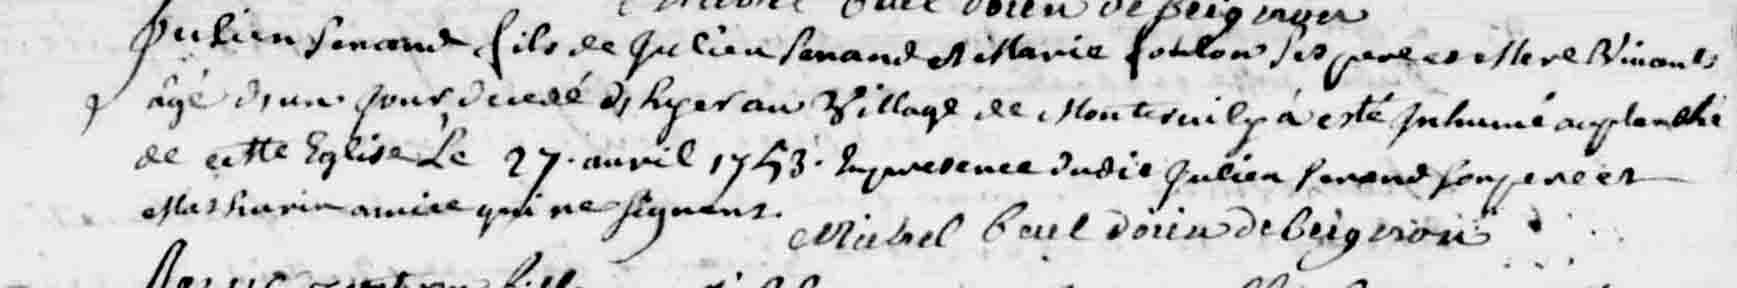 Michel Bouel doien de Beignon
Julien Serand fils de Julien Serand et Marie foulon Ses pere et Mere Vivants
âgé d'un Jour decedé d'hyer au Village de Montervily a esté Inhumé au
de cette Eglise Le 27. auril 1753. En presence dudit Julien Serand Son pere et
Mathurin amice qui ne Signent.
Michel Bouel doien de Beignon